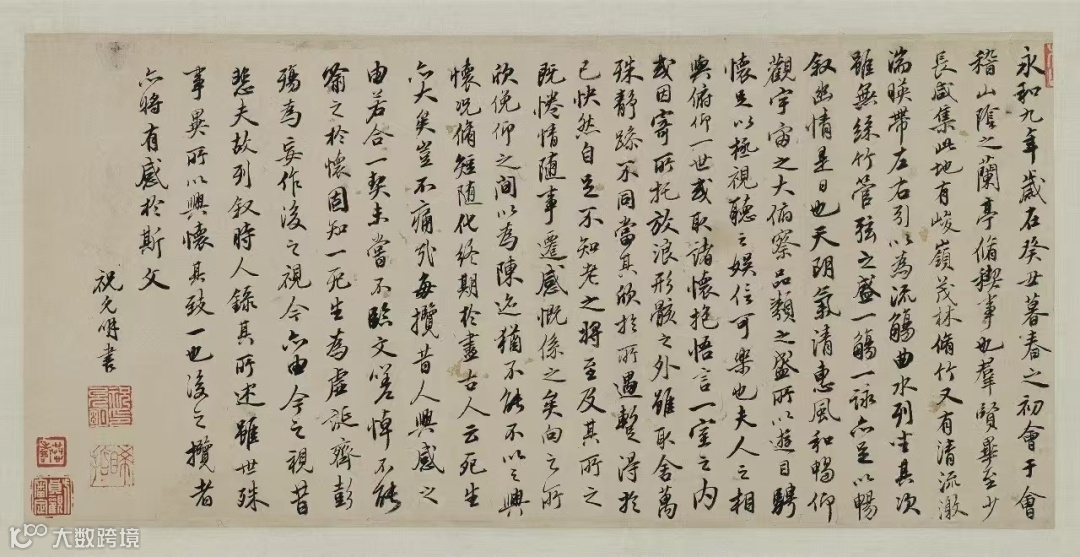 永和九年歲在癸丑暮春之初會于會
稽山陰之蘭亭脩稧事也羣賢畢至少
長咸集此地有峻嶺茂林脩竹又有清流激
湍暎帶左右引以為流觴曲水列坐其次
雖無絲竹管弦之盛一觴一詠亦足以暢
叙幽情是日也天朗氣清惠風和暢仰
觀宇宙之大俯察品類之盛所以遊目騁
懷足以極視聽之娛信可樂也夫人之相
與俯仰一世或取諸懷抱悟言一室之內
或因寄所托放浪形骸之外雖取舍萬
殊靜躁不同當其欣於所遇蹔得於
己快然自足不知老之將至及其所之
既惓情随事遷感慨係之矣向之所
欣俛仰之間以為陳迹猶不能不以之興
懷况脩短随化終期於盡古人云死生
亦大矣豈不痛哉每攬昔人興感之
由若合一契未嘗不臨文嗟悼不能
喻之於懷固知一死生為虛誕齊彭
殤為妄作後之視今亦由今之視昔
悲夫故列叙時人錄其所述雖世殊
事異所以興懷其致一也後之攬者
亦將有感於斯文
祝允明書
大数跨境